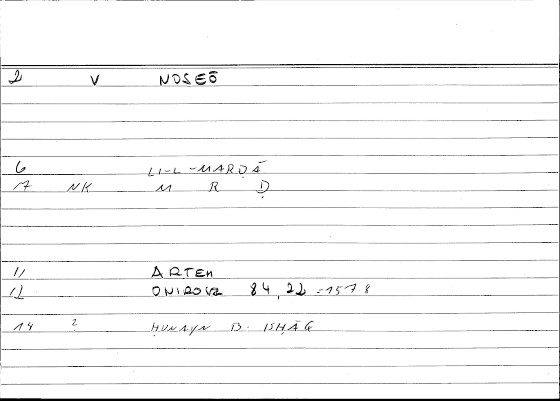 2 V NOSEŌ
6 LI-L-MARḌĀ
17 NK M R Ḍ
11 ARTEM
12 ONIROKR 84,22 = 157.8
14 ? ḤUNAYN B. ISḤĀQ